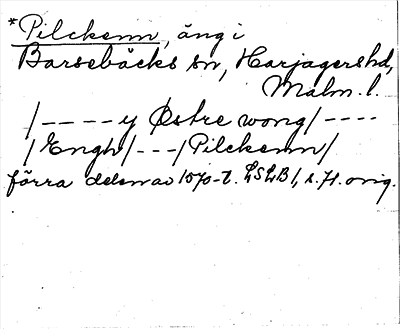 *Pilckenn, äng i
Barsebäcks sn, Harjagers hd,
Malm. l.
/ - - - - y Østre wong / - - - -
/ Engh / - - - / Pilckenn /
förra delen av 1570-t. LSLB 1, s. 71. orig.